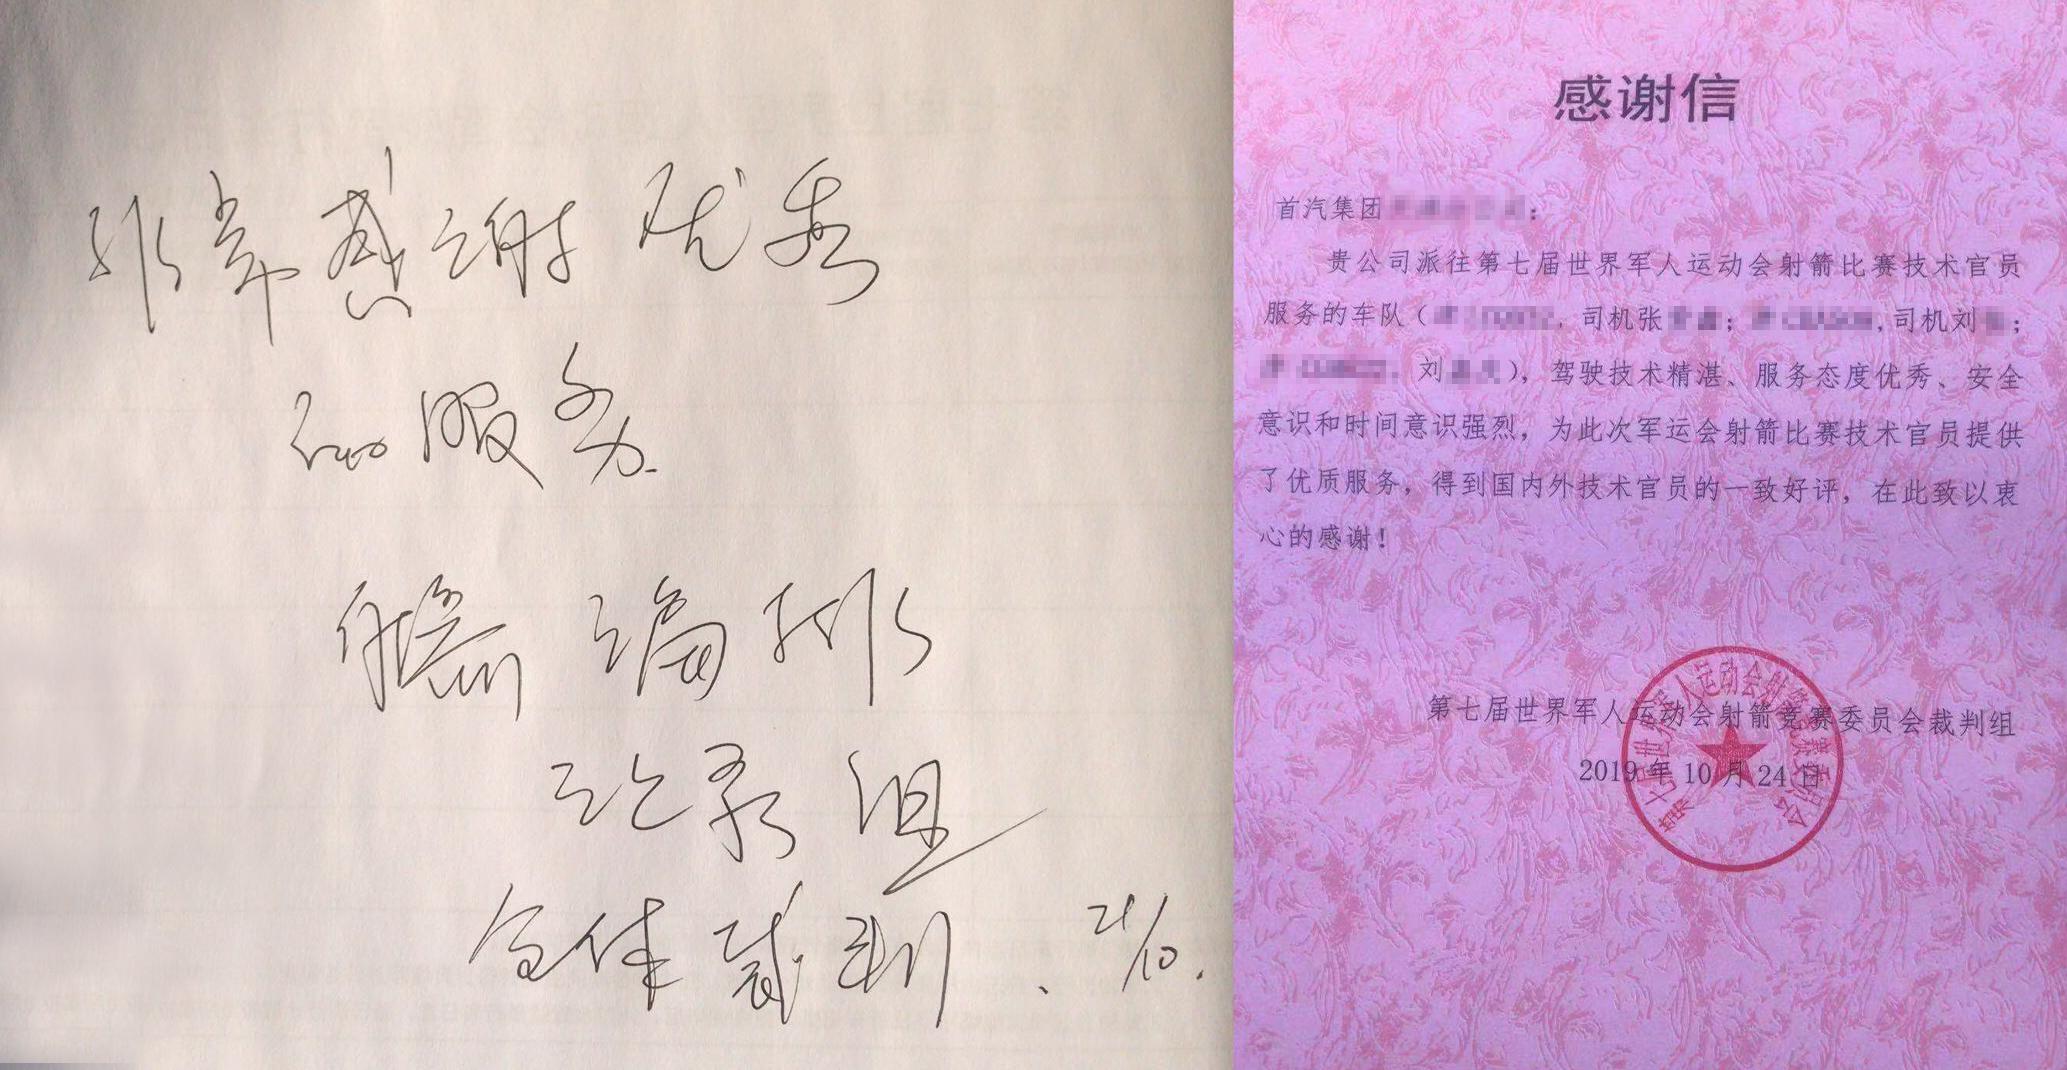 非常感谢优秀
的服务
编排
记录组
全体裁判. 21/10.
感谢信
首汽集团
贵公司派往第七届世界军人运动会射箭比赛技术官员
服务的车队（ ，司机张 ； ，司机刘 ；
，刘 ），驾驶技术精湛、服务态度优秀、安全
意识和时间意识强烈，为此次军运会射箭比赛技术官员提供
了优质服务，得到国内外技术官员的一致好评，在此致以衷
心的感谢！
第七届世界军人运动会射箭竞赛委员会裁判组
2019年10月24日
第七届世界军人运动会射箭竞赛委员会